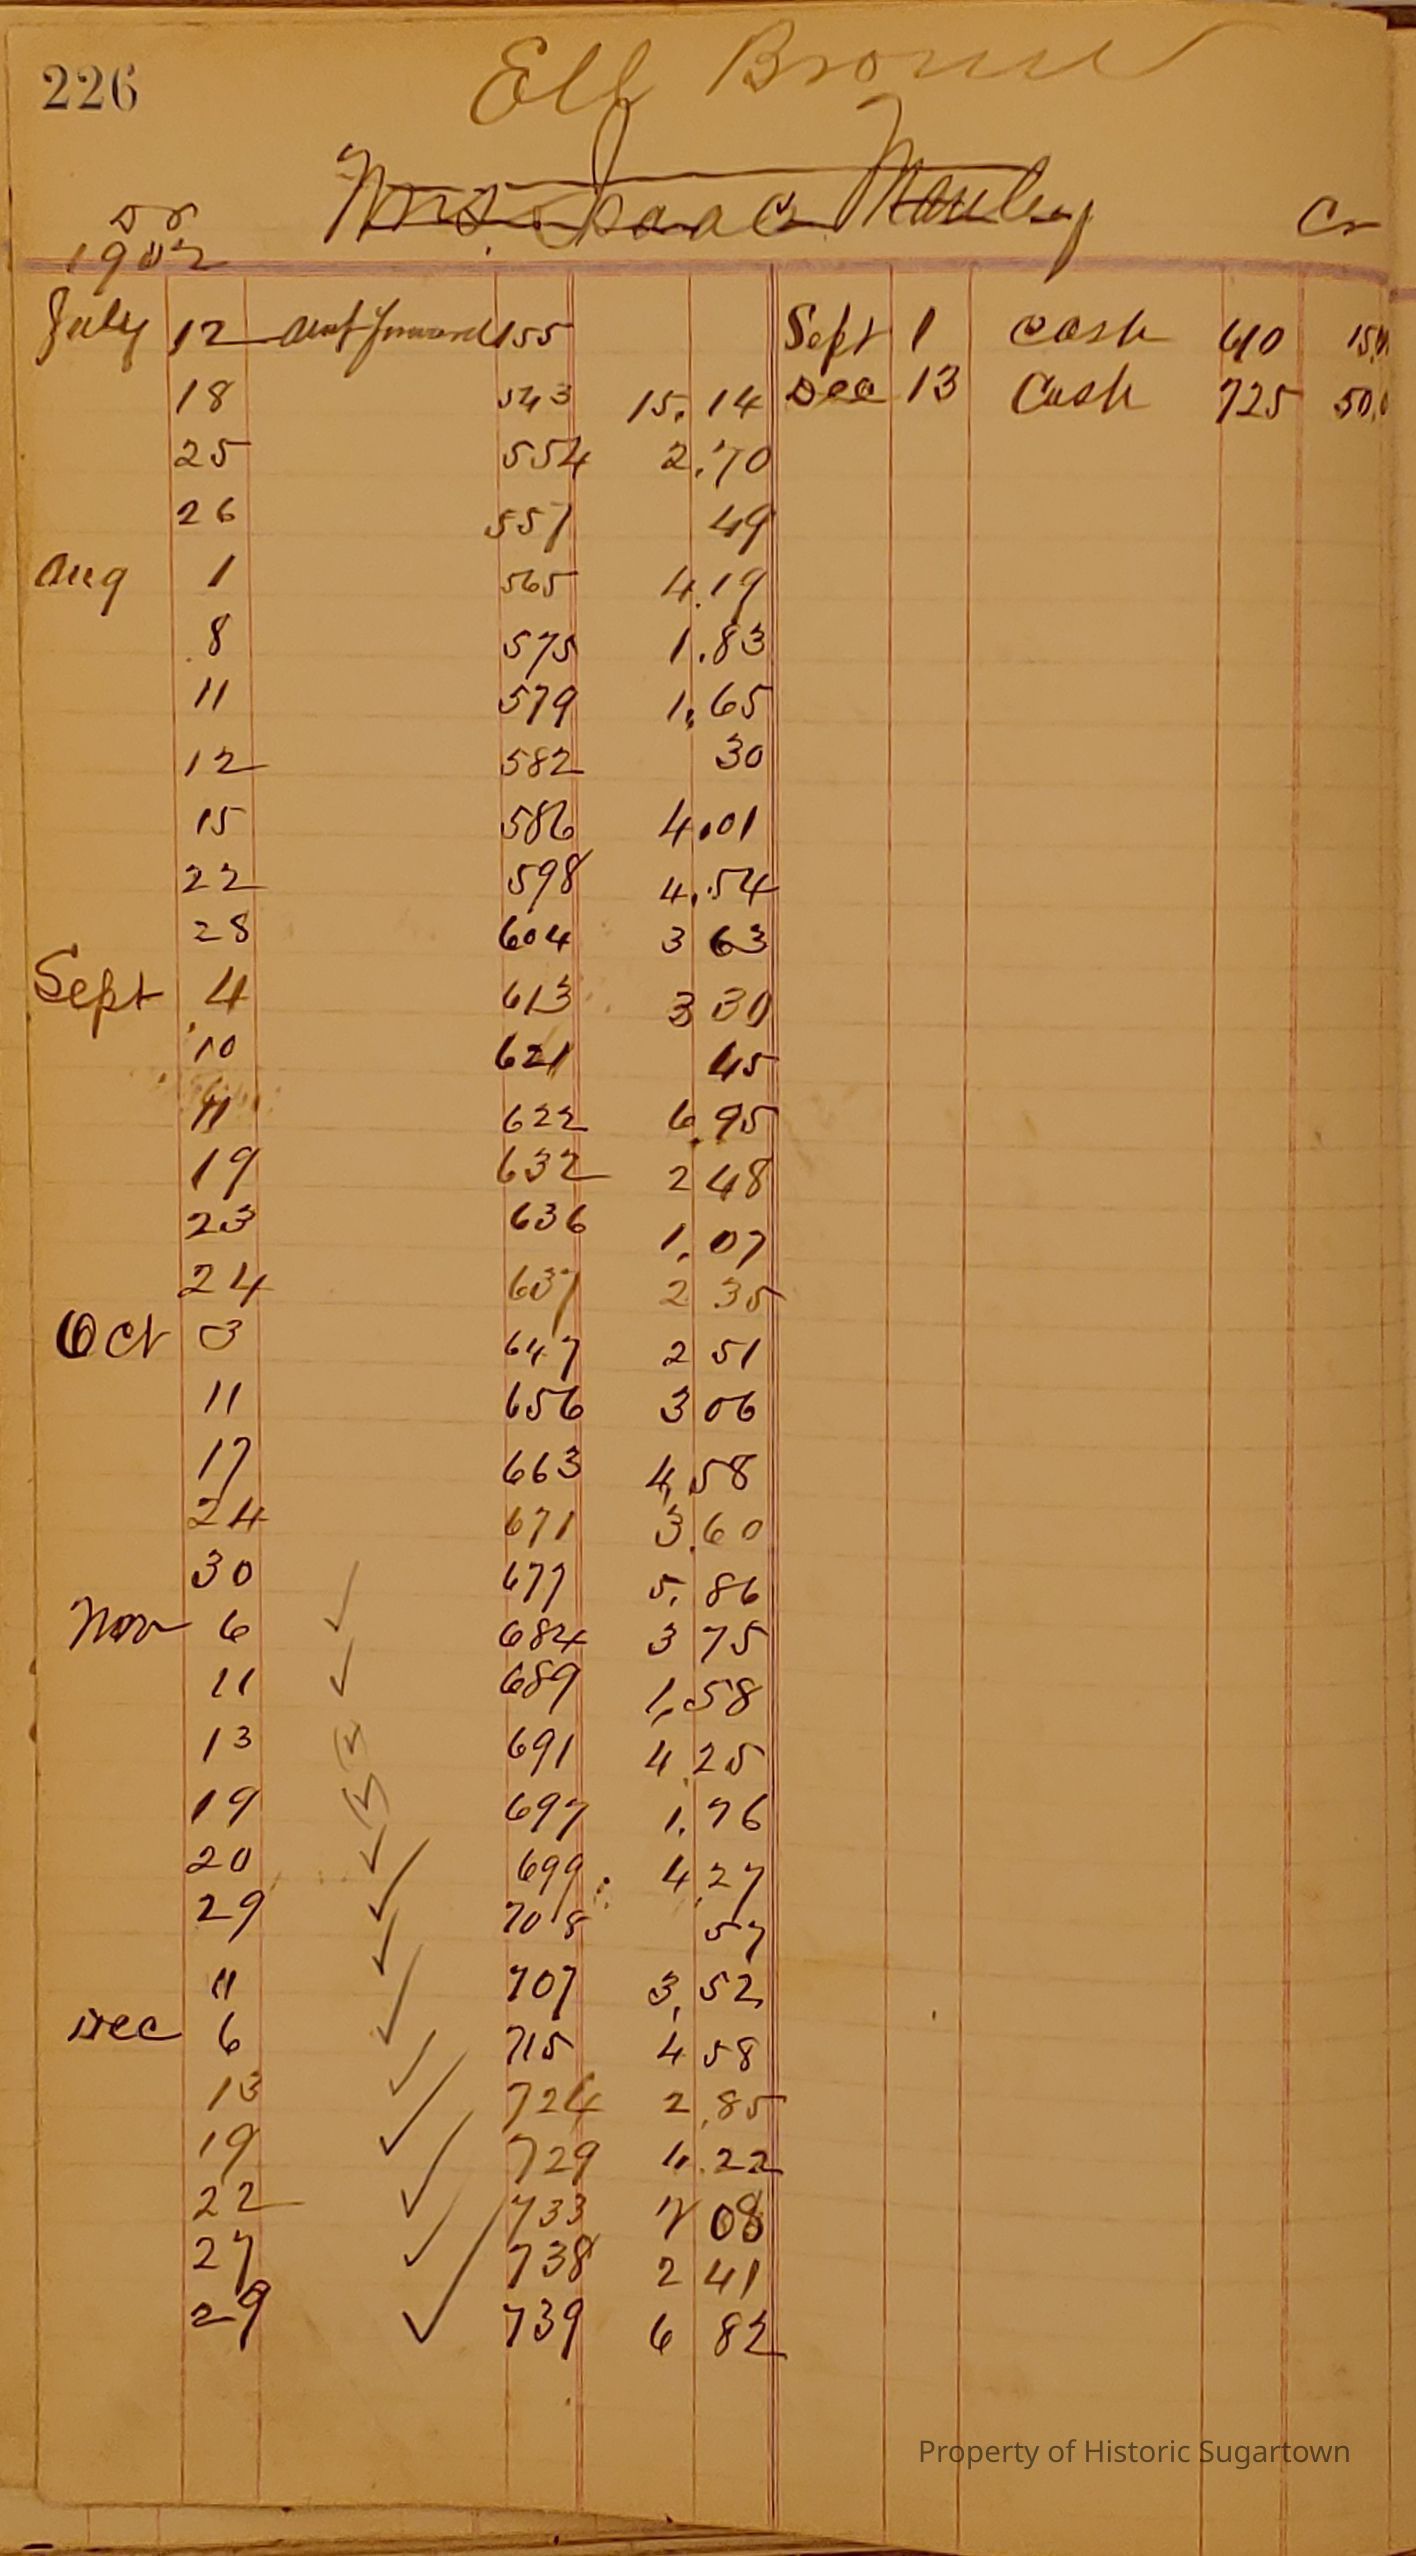 226
Elf Brown
Mrs. Isaac Manley
Dr Cr
1902
July 12 amt forward 155 Sept 1 cash 610 15,0
18 543 15.14 Dec 13 Cash 725 50,0
25 554 2.70
26 557 49
Aug 1 565 4.19
8 575 1.83
11 579 1.65
12 582 30
15 586 4.01
22 598 4.54
28 604 3 63
Sept 4 613 3 30
10 621 45
11 622 6.95
19 632 2 48
23 636 1.07
24 637 2 35
Oct 3 647 2 51
11 656 3 06
17 663 4.58
24 671 3.60
30 677 5.86
Nov 6 684 3 75
11 689 1.58
13 691 4.25
19 697 1.76
20 699 4.27
29 708 57
11 707 3.52
Dec 6 715 4 58
13 724 2.85
19 729 4.22
22 733 08
27 738 2 41
29 739 6 82
Property of Historic Sugartown